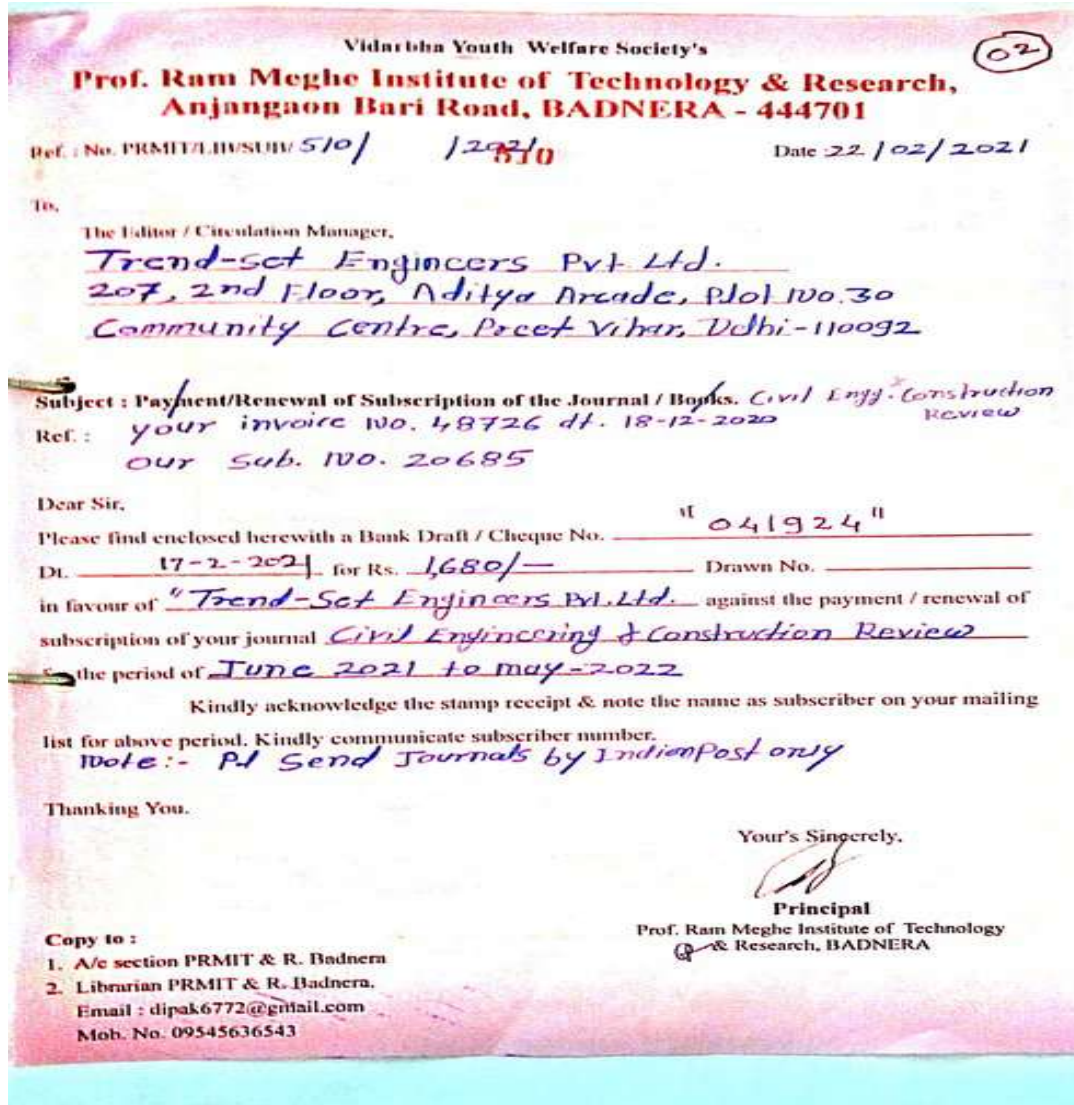 Vidarbha Youth Welfare Society's
02
Prof. Ram Meghe Institute of Technology & Research,
Anjangaon Bari Road, BADNERA - 444701
Ref. : No. PRMIT/LIB/SUB/ 510/ /2021 510 Date :22/02/2021
To,
The Editor / Circulation Manager,
Trend-set Engineers Pvt Ltd.
207, 2nd Floor, Aditya Arcade, Plot No. 30
Community Centre, Preet Vihar, Delhi-110092
Subject : Payment/Renewal of Subscription of the Journal / Books. Civil Engg. Construction
Review
Ref. : your invoice No. 48726 dt. 18-12-2020
our Sub. No. 20685
Dear Sir,
Please find enclosed herewith a Bank Draft / Cheque No. "041924"
Dt. 17-2-2021 for Rs. 1,680/- Drawn No.
in favour of "Trend-Set Engineers Pvt. Ltd. against the payment / renewal of
subscription of your journal Civil Engineering & Construction Review
the period of June 2021 to may-2022
Kindly acknowledge the stamp receipt & note the name as subscriber on your mailing
list for above period. Kindly communicate subscriber number.
Note:- Pl Send Journals by Indian Post only
Thanking You.
Your's Sincerely,
Principal
Prof. Ram Meghe Institute of Technology
& Research, BADNERA
Copy to :
1. A/c section PRMIT & R. Badnera
2. Librarian PRMIT & R. Badnera.
Email : dipak6772@gmail.com
Mob. No. 09545636543